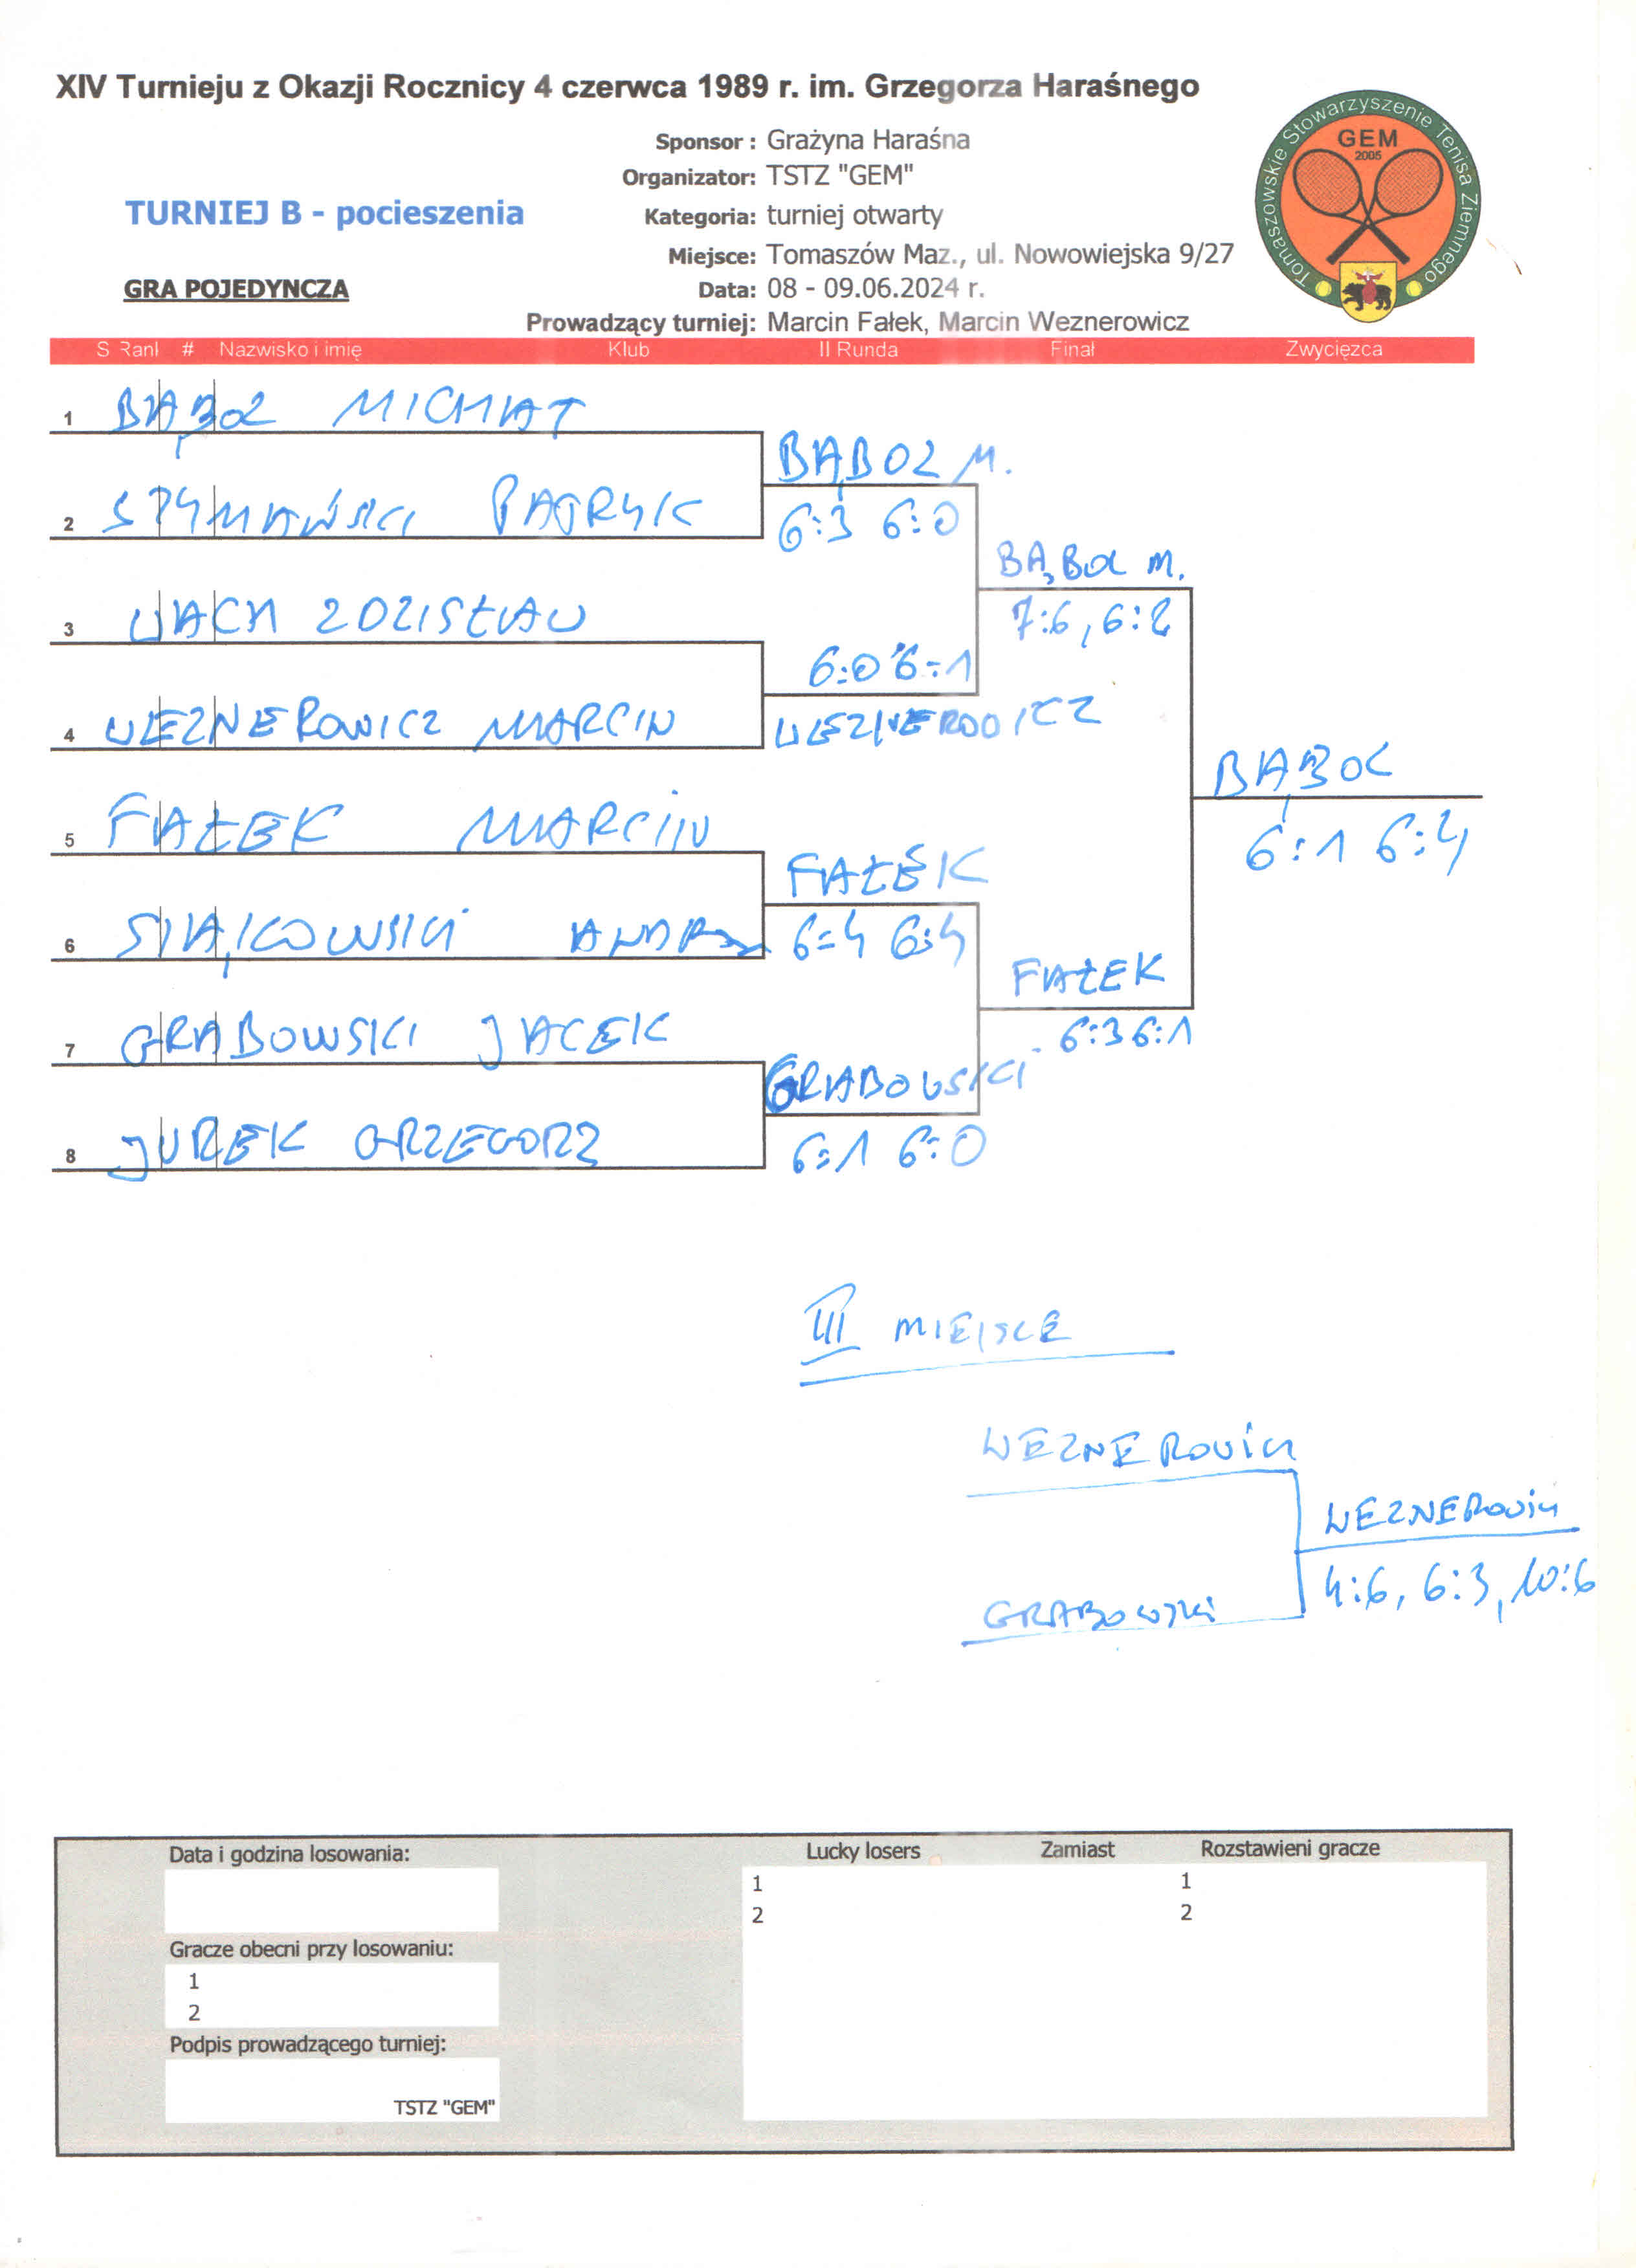 XIV Turnieju z Okazji Rocznicy 4 czerwca 1989 r. im. Grzegorza Haraśnego
Sponsor : Grażyna Haraśna
Organizator: TSTZ "GEM"
TURNIEJ B - pocieszenia
Kategoria: turniej otwarty
Miejsce: Tomaszów Maz., ul. Nowowiejska 9/27
GRA POJEDYNCZA
Data: 08 - 09.06.2024 r.
Prowadzący turniej: Marcin Fałek, Marcin Weznerowicz
Tomaszowskie Stowarzyszenie Tenisa Ziemnego
GEM
2005
S Rank # Nazwisko i imię Klub II Runda Finał Zwycięzca
1 BĄBOL MICHAŁ
BĄBOL M.
2 SZYMAŃSKI PATRYK
6:3 6:0
BĄBOL M.
3 WACH ZDZISŁAW
7:6, 6:2
6:0 6:1
4 WEZNEROWICZ MARCIN
WEZNEROWICZ
BĄBOL
5 FAŁEK MARCIN
6:1 6:4
FAŁEK
6 SIĄKOWSKI
6:4 6:4
FAŁEK
7 GRABOWSKI JACEK
6:3 6:1
GRABOWSKI
8 JUREK GRZEGORZ
6:1 6:0
III MIEJSCE
WEZNEROWICZ
WEZNEROWICZ
4:6, 6:3, 10:6
GRABOWSKI
Data i godzina losowania:
Lucky losers Zamiast Rozstawieni gracze
1 1
2 2
Gracze obecni przy losowaniu:
1
2
Podpis prowadzącego turniej:
TSTZ "GEM"